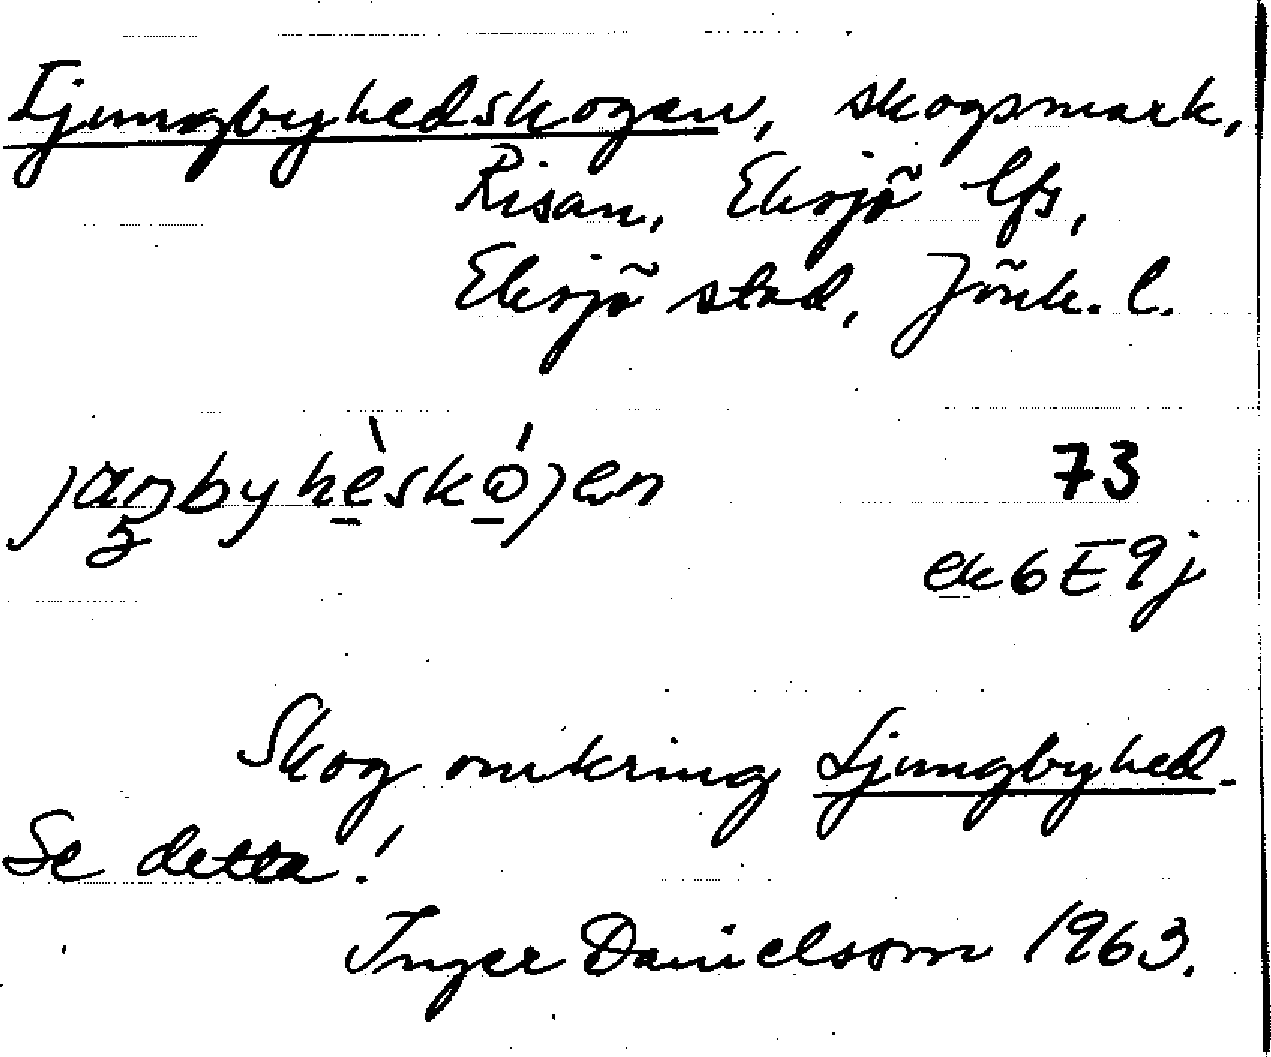 Ljungbyhedskogen, skogsmark,
Risan, Eksjö lfs,
Eksjö stad, Jönk. l.
73
ek 6 E 9 j
Skog omkring Ljungbyhed.
Se detta!
Inger Danielsson 1963.